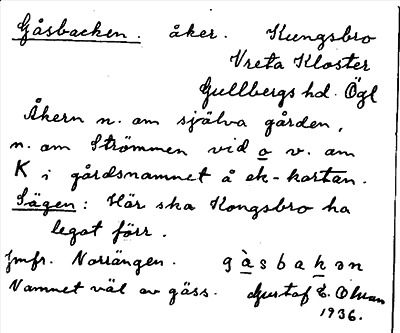 Gåsbacken. åker. Kungsbro
Vreta Kloster
Gullbergs hd. Ögl
Åkern n. om själva gården,
n. om Strömmen vid o v. om
K i gårdsnamnet å ek-kartan.
Sägen: Här ska Kongsbro ha
legat förr.
Jmfr. Norrängen. gàsbakən
Namnet väl av gäss. Gustaf E. Olsson
1936.